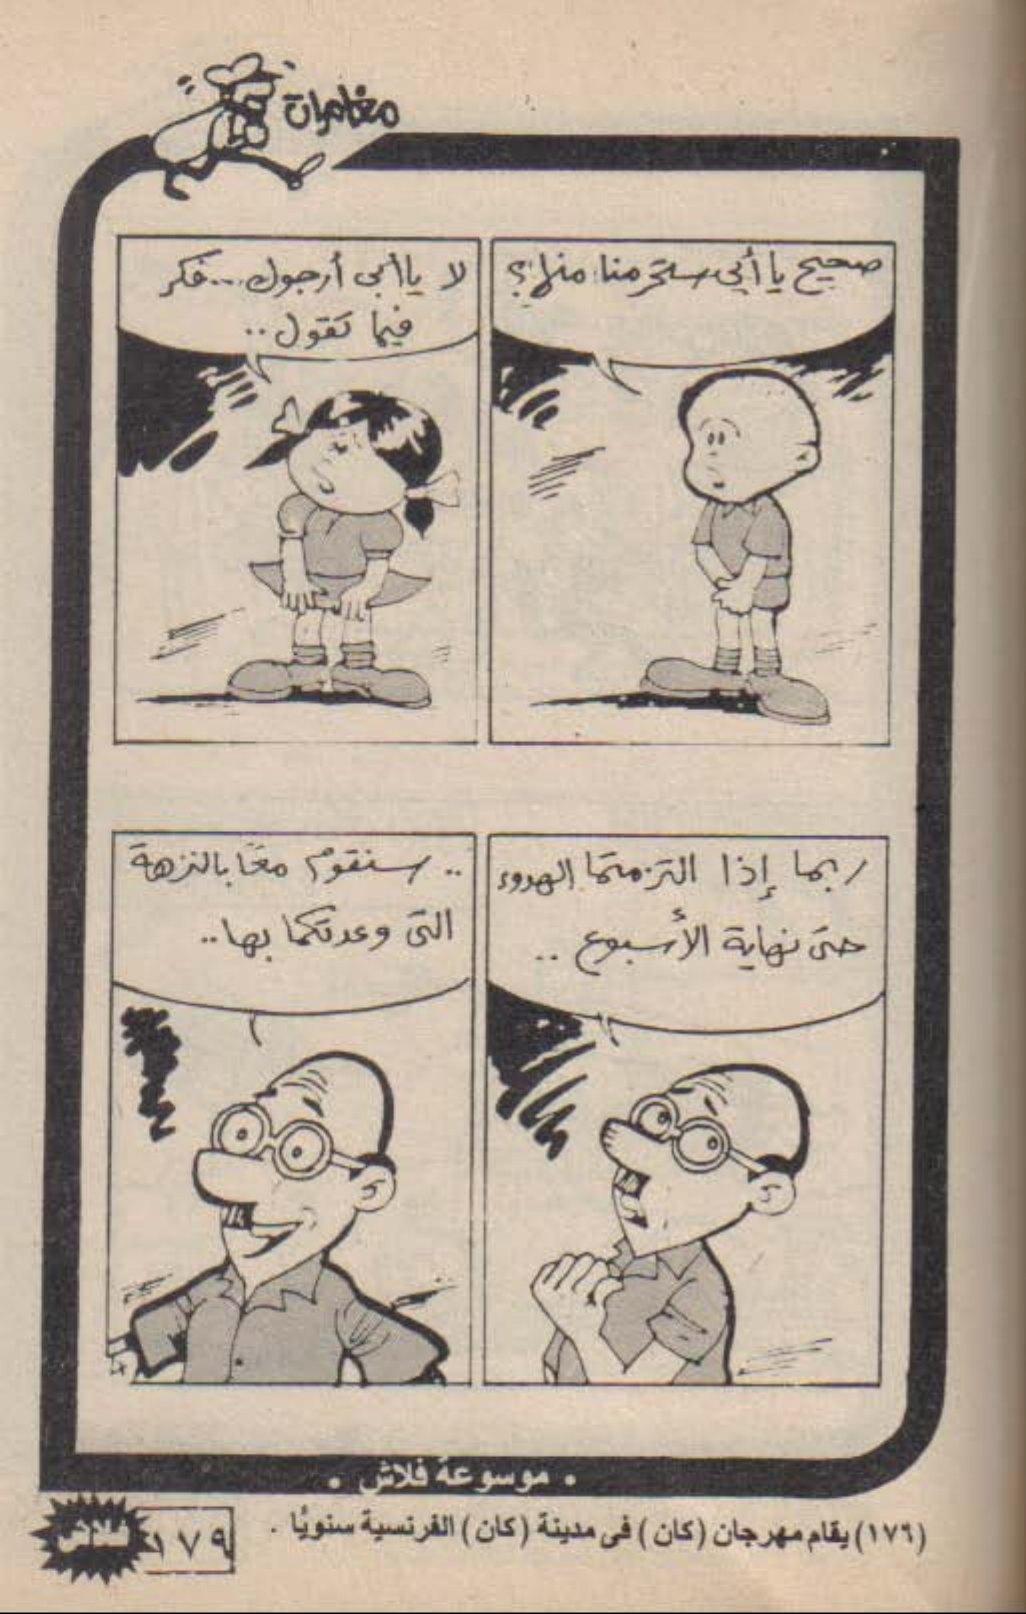 مغامرات
صحيح يا أبي ستحرمنا منها؟
لا ياأبى أرجوك...فكر
فيما تقول..
ربما إذا التزمتما الهدوء
حتى نهاية الأسبوع ..
.. سنقوم معًا بالنزهة
التى وعدتكما بها..
• موسوعة فلاش •
(١٧٦) يقام مهرجان (كان) فى مدينة (كان) الفرنسية سنويًا .
١٧٩
فلاش